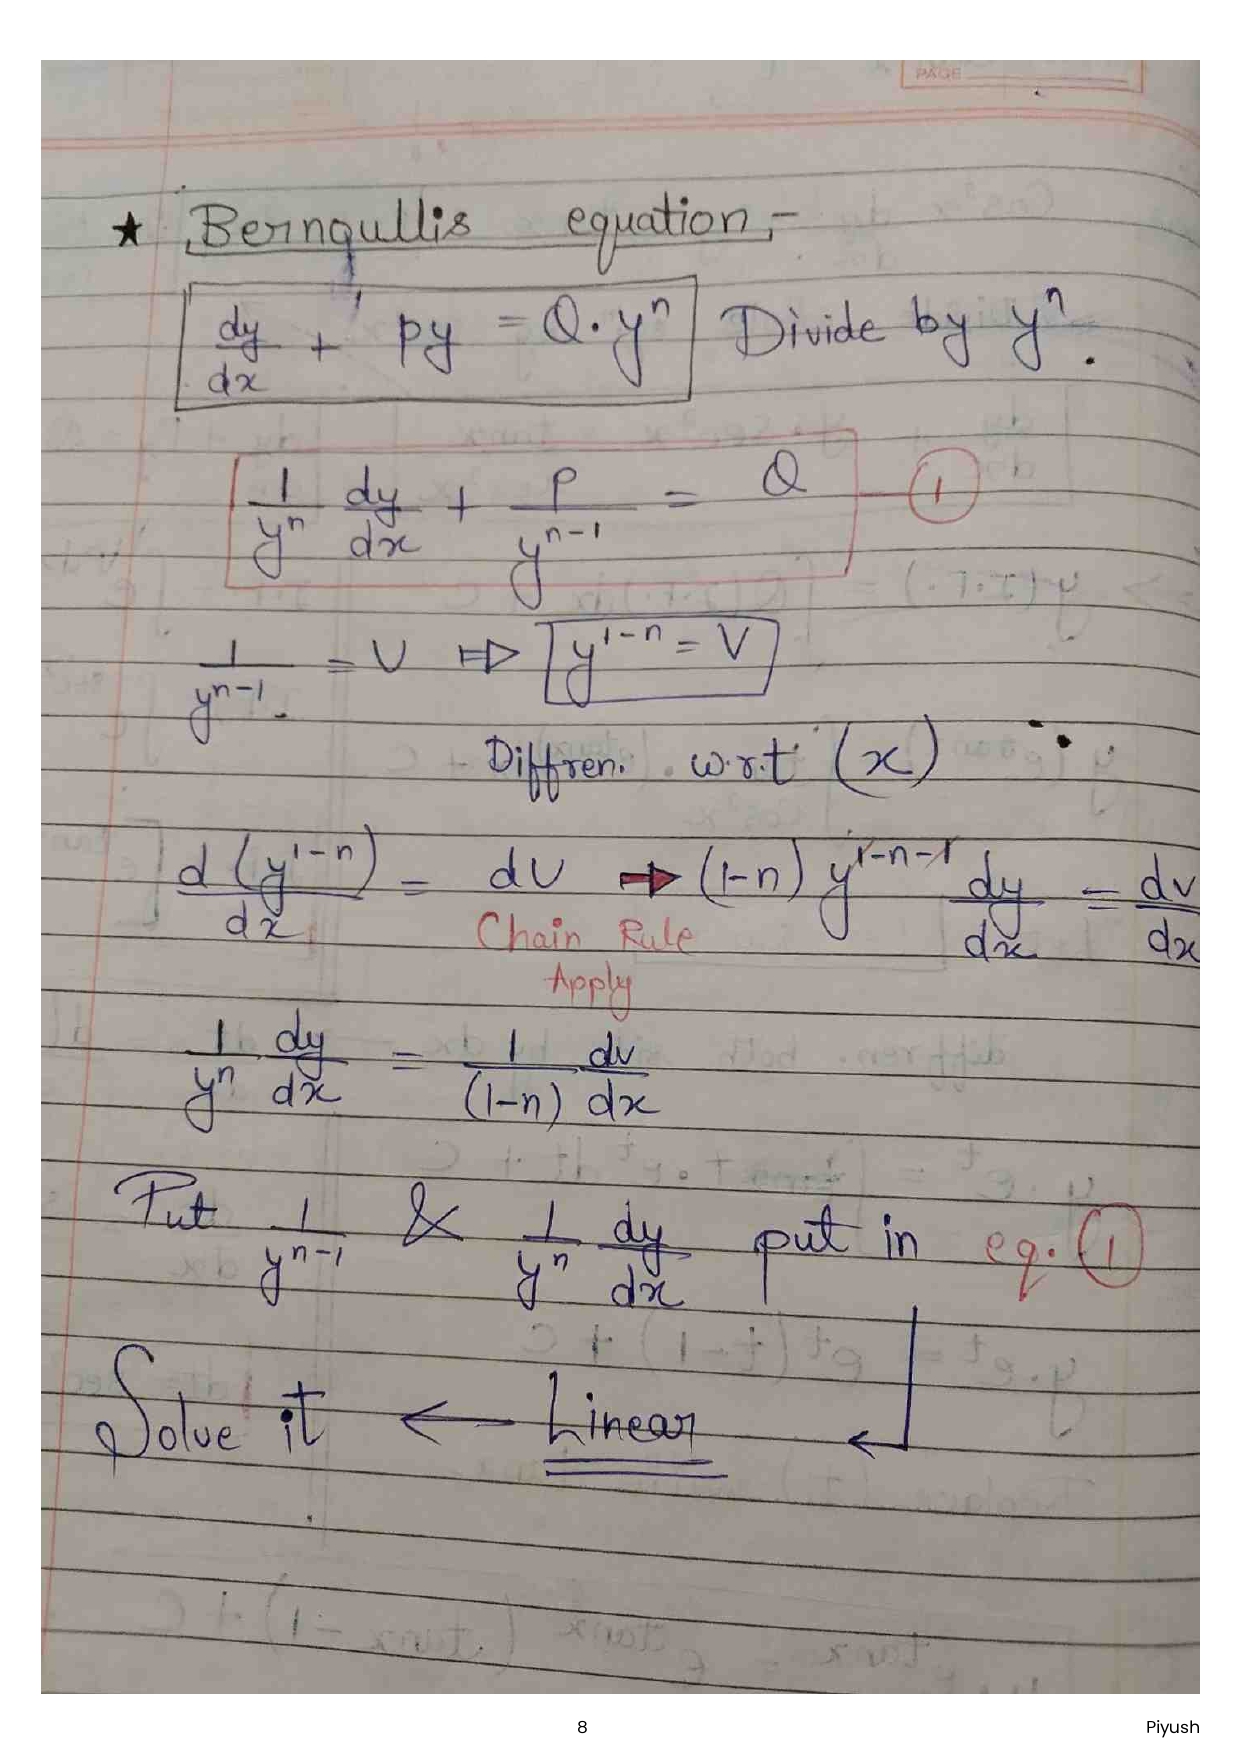 PAGE
★ Bernoullis equation,-
dy/dx + py = Q·yⁿ Divide by yⁿ.
1/yⁿ dy/dx + p/yⁿ⁻¹ = Q — ①
1/yⁿ⁻¹ = V ⇒ y¹⁻ⁿ = V
Diffren. w.r.t (x)
d(y¹⁻ⁿ)/dx = dv → (1-n) y¹⁻ⁿ⁻¹ dy/dx = dv/dx
Chain Rule
Apply
1/yⁿ dy/dx = 1/(1-n) dv/dx
Put 1/yⁿ⁻¹ & 1/yⁿ dy/dx put in eq. ①
Solve it ← Linear ←
8 Piyush